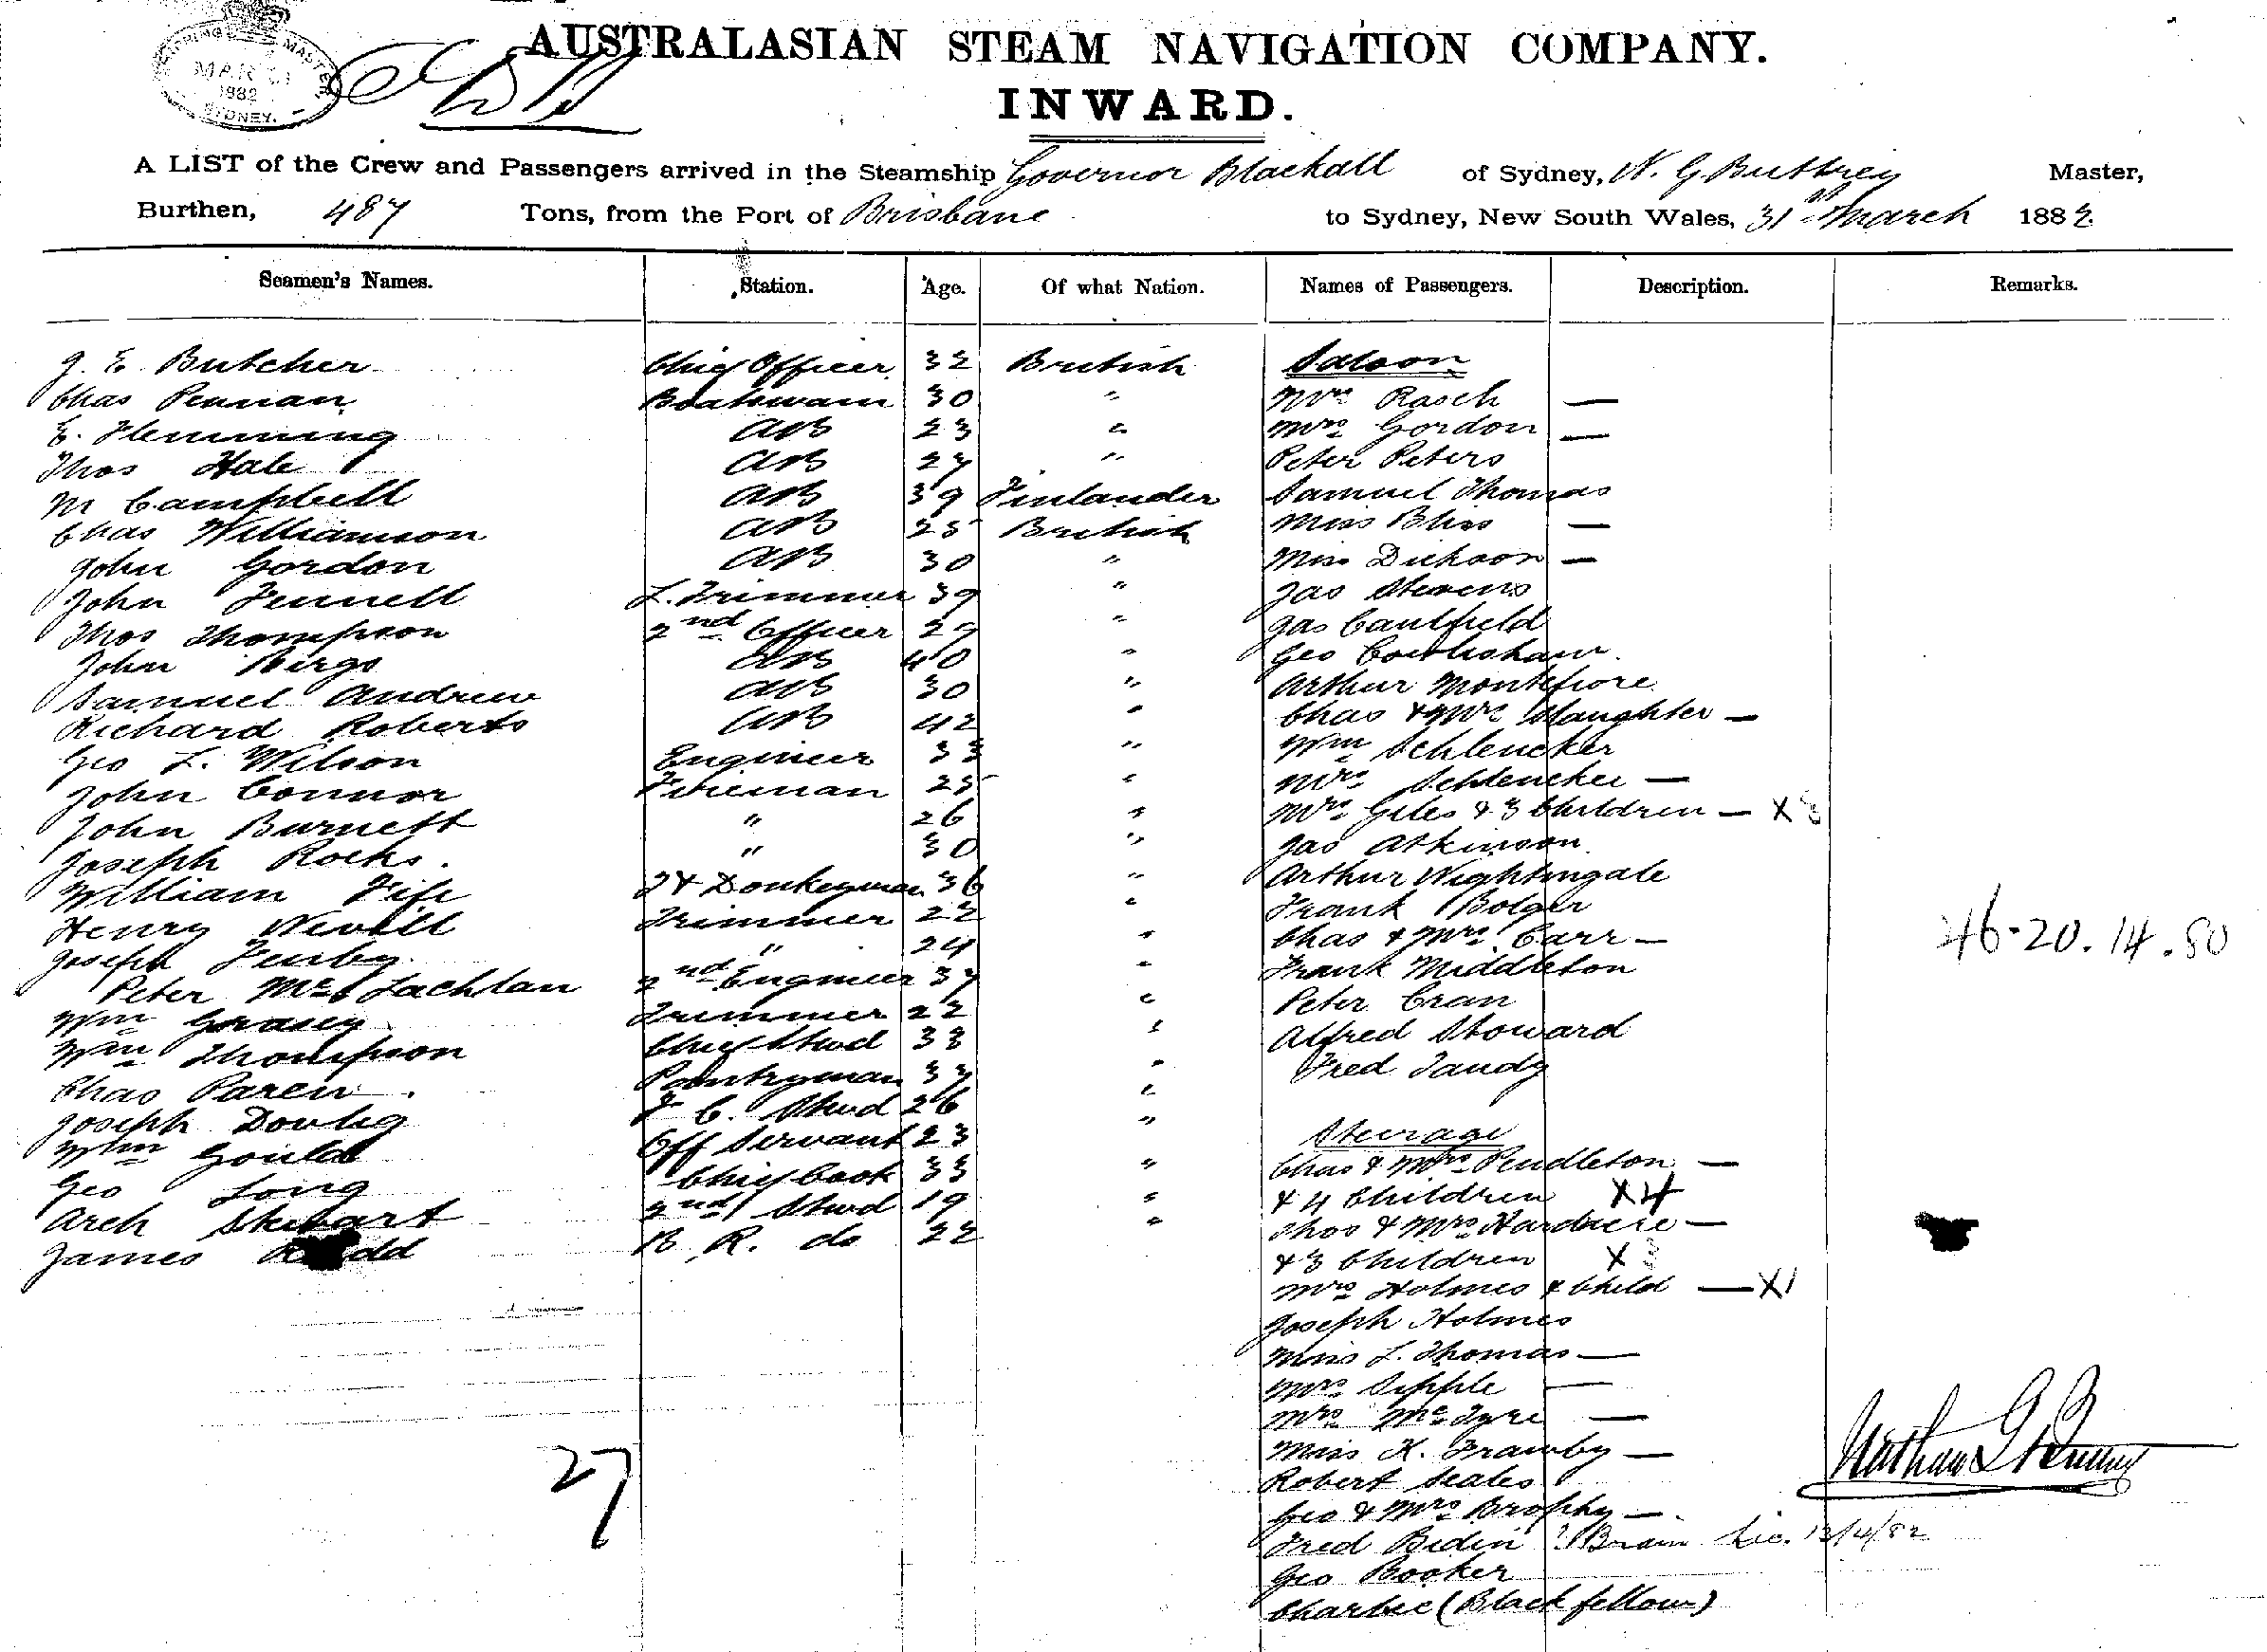 SHIPPING MASTER
MAR 31
1882
SYDNEY.
AUSTRALASIAN STEAM NAVIGATION COMPANY.
INWARD.
A LIST of the Crew and Passengers arrived in the Steamship Governor Blackall of Sydney, N. G. Buttrey Master,
Burthen, 487 Tons, from the Port of Brisbane to Sydney, New South Wales, 31st March 1882
Seamen's Names. Station. Age. Of what Nation. Names of Passengers. Description. Remarks.
J. E. Butcher Chief Officer 32 British Saloon
Chas Pennan Boatswain 30 " Mrs Rasch —
E. Flemming AB 23 " Mrs Gordon —
Thos Hale AB 27 " Peter Peters
M Campbell AB 39 Finlander Samuel Thomas
Chas Williamson AB 25 British Miss Bliss —
John Gordon AB 30 " Miss Dickson —
John Fennell L. Trimmer 39 " Jas Stevens
Thos Thompson 2nd Officer 29 " Jas Caulfield
John AB 40 " Geo Cowlishaw.
Samuel Andrew AB 30 " Arthur Montefiore
Richard Roberts AB 42 " Chas & Mrs Slaughter —
Geo L. Wilson Engineer 33 " Wm Schlencker
John Connor Fireman 25 " Mrs Schlencker —
John Burnett " 26 " Mrs Giles & 3 Children — X 3
Joseph Rocks. " 30 " Jas Atkinson
William Fife Donkeyman 36 " Arthur Nightingale
Henry Nevill Trimmer 22 " Frank Bolger
Joseph " 24 " Chas & Mrs Carr —
Peter McLachlan 2nd Engineer 37 " Frank Middleton
Wm Trimmer 22 " Peter Cran
Wm Thompson Chief Stwd 33 " Alfred Stoward
Chas Pantryman 37 " Fred Tandy
Joseph F C. Stwd 26 "
Wm Gould Off Servant 23 " Steerage
Geo Long Chief Cook 33 " Chas & Mrs Pendleton —
Arch Stewart 2nd Stwd 19 " & 4 Children X4
James B. R. do 22 " Thos & Mrs Hardacre —
& 3 Children X 3
Mrs Holmes & Child — X1
Joseph Holmes
Miss L. Thomas —
Mrs Sipple —
Mrs —
Miss K. —
Robert Scales
Geo & Mrs Brophy —
Fred Bedin ? Brain Lic. 13/4/82
Geo Booker
Charlie (Black fellow)
46-20.14.80
27